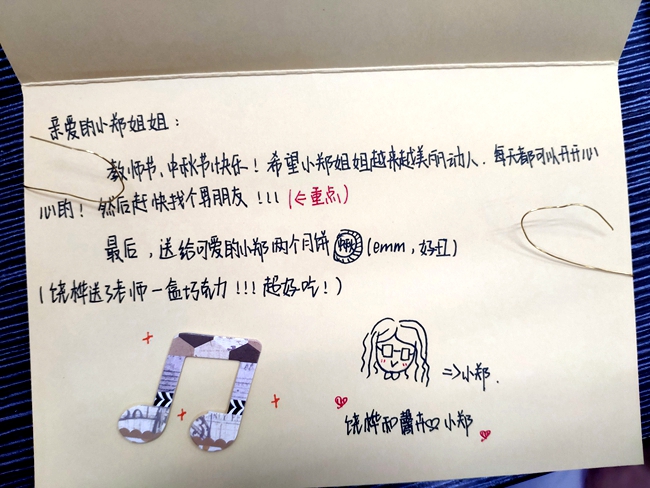 亲爱的小郑姐姐：
教师节、中秋节快乐！希望小郑姐姐越来越美丽动人、每天都可以开开心
心的！然后赶快找个男朋友！！！(<=重点)
最后，送给可爱的小郑两个月饼(emm，好丑)
(饶桦送了老师一盒巧克力！！！超好吃！)
=>小郑.
饶桦和馨卉 小郑